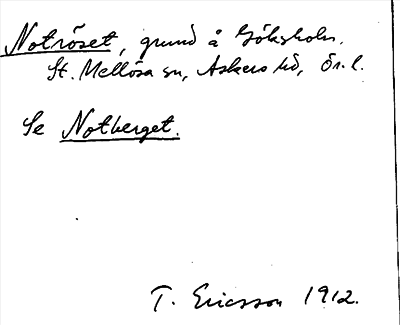 Notröset, grund å Göksholm.
St. Mellösa sn, Askers hd, Ör. l.
Se Notberget.
T. Ericsson 1912.